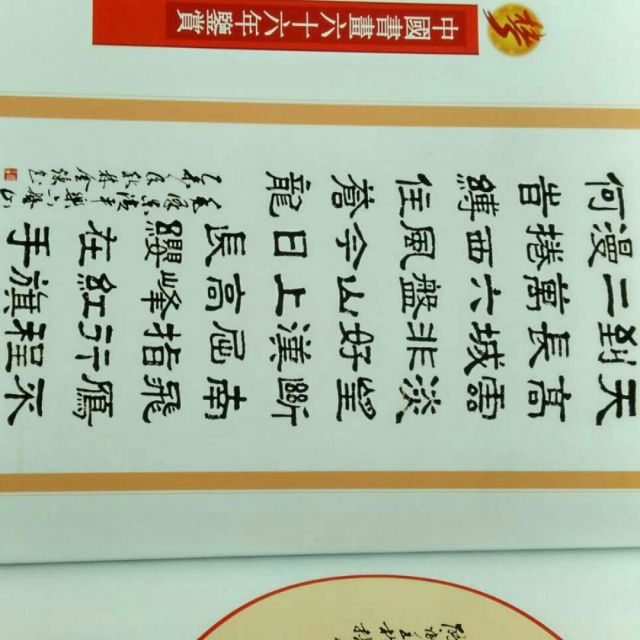 中國書畫六十六年鑒賞
天高雲淡望斷南飛鴈不
到長城非好漢屈指行程
二萬六盤山上高峰紅旗
漫捲西風今日長纓在手
何旹縛住蒼龍